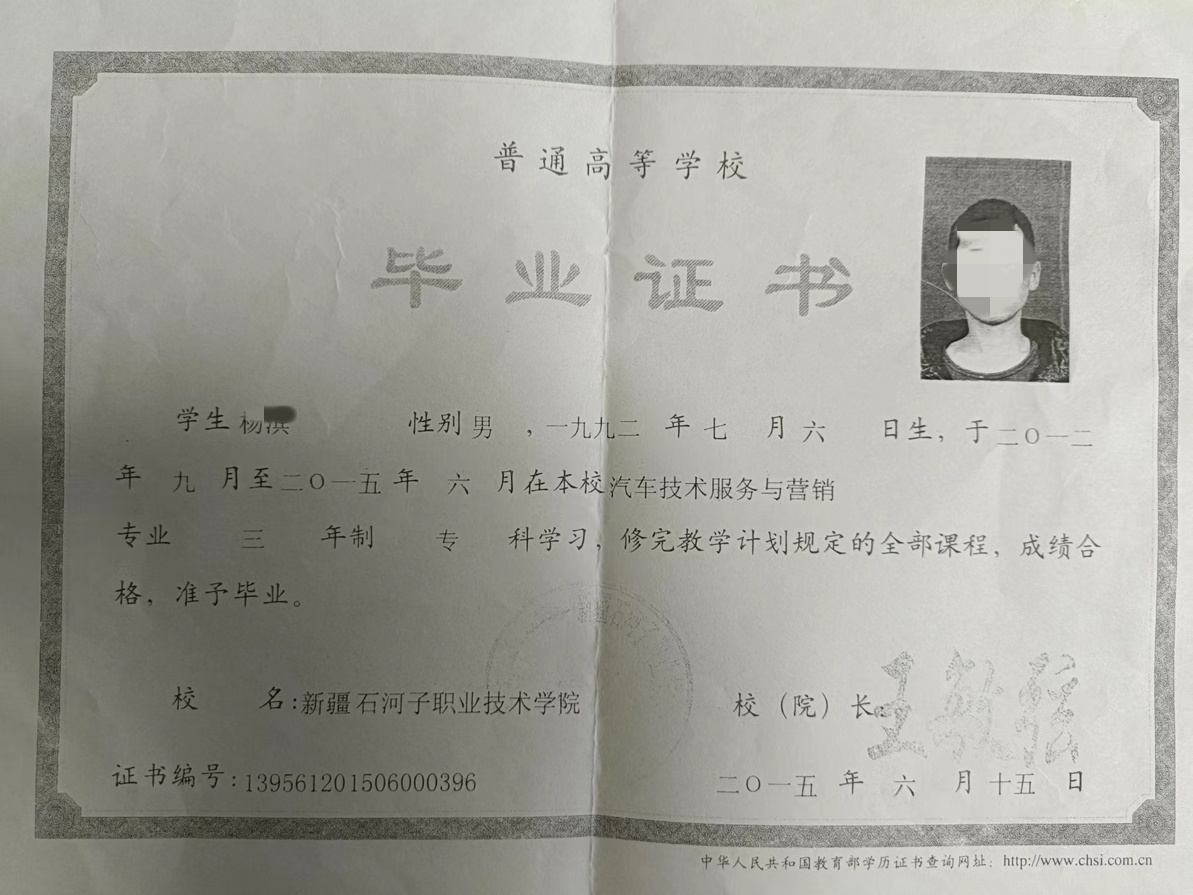 普通高等学校
毕业证书
学生 杨滨 性别 男 ，一九九二 年 七 月 六 日生，于 二〇一二
年 九 月至 二〇一五 年 六 月在本校 汽车技术服务与营销
专业 三 年制 专 科学习，修完教学计划规定的全部课程，成绩合
格，准予毕业。
新疆石河子
校 名：新疆石河子职业技术学院 校（院）长：
证书编号：139561201506000396 二〇一五 年 六 月 十五 日
中华人民共和国教育部学历证书查询网址：http://www.chsi.com.cn